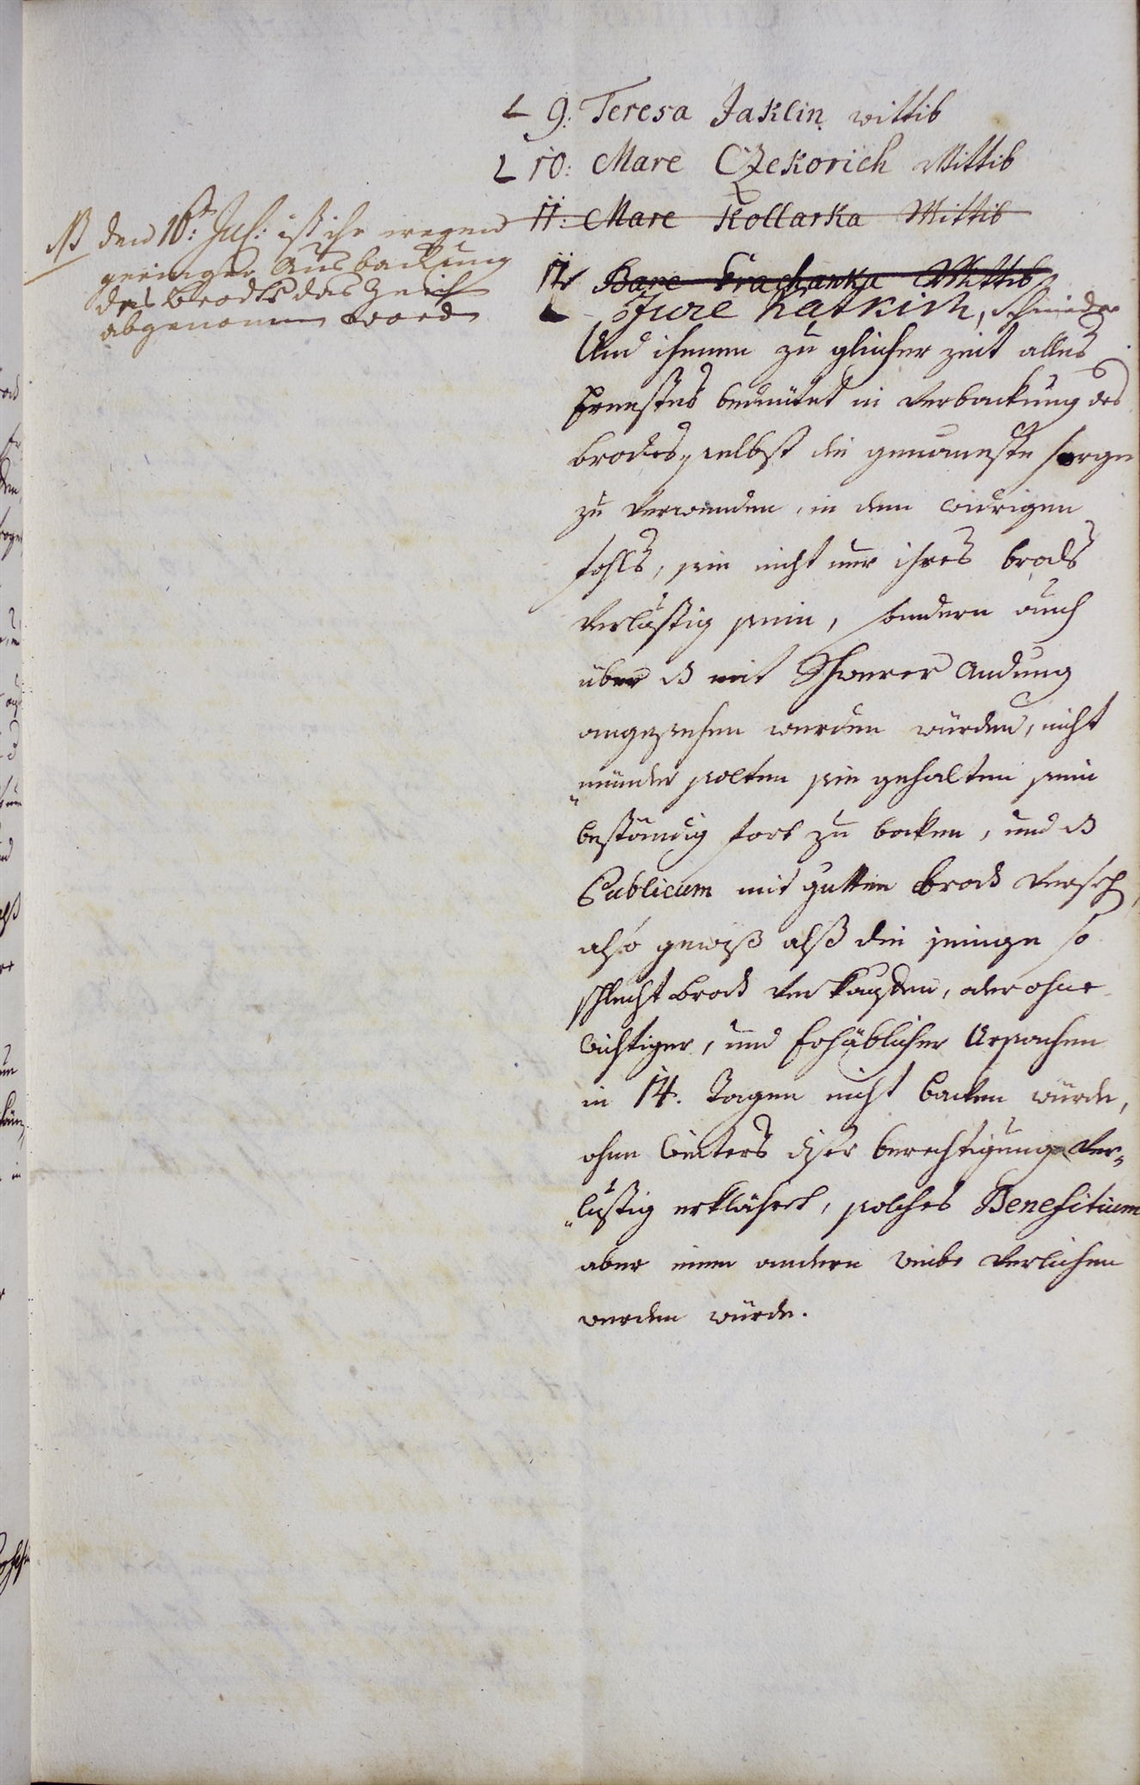 9: Teresa Jaklin wittib
10: Mare Czekorich Wittib
11: Mare Kollarka Wittib
NB den 16t: Jul: ist ihr wegen
geringer Ausbackung
des Brodts das Zeich
abgenomen word
Bare Wittib
Jure
Und ihnen zu glicher zeit alles
Ernstes bedeütet in Verbackung des
brodes, selbst die genaueste sorge
zu verwenden, in dem widrigen
fahls, sie nicht nur ihres brods
verlustig sein, sondern auch
über dis mit Schwerer Andung
angesehen werden würden, nicht
münder solten sie gehalten sein
beständig fort zu backen, und dis
Publicum mit gutten brod
also gewiß alß die jenige so
schlecht brod verkauften, oder ohne
wichtiger, und Erhäblicher Ursachen
in 14. Tagen nicht backen würde,
ohne Weiters diser berechtigung ver„
„lustig erklähret, solches Benefitium
aber einen andern weibe verlichen
werden würde.